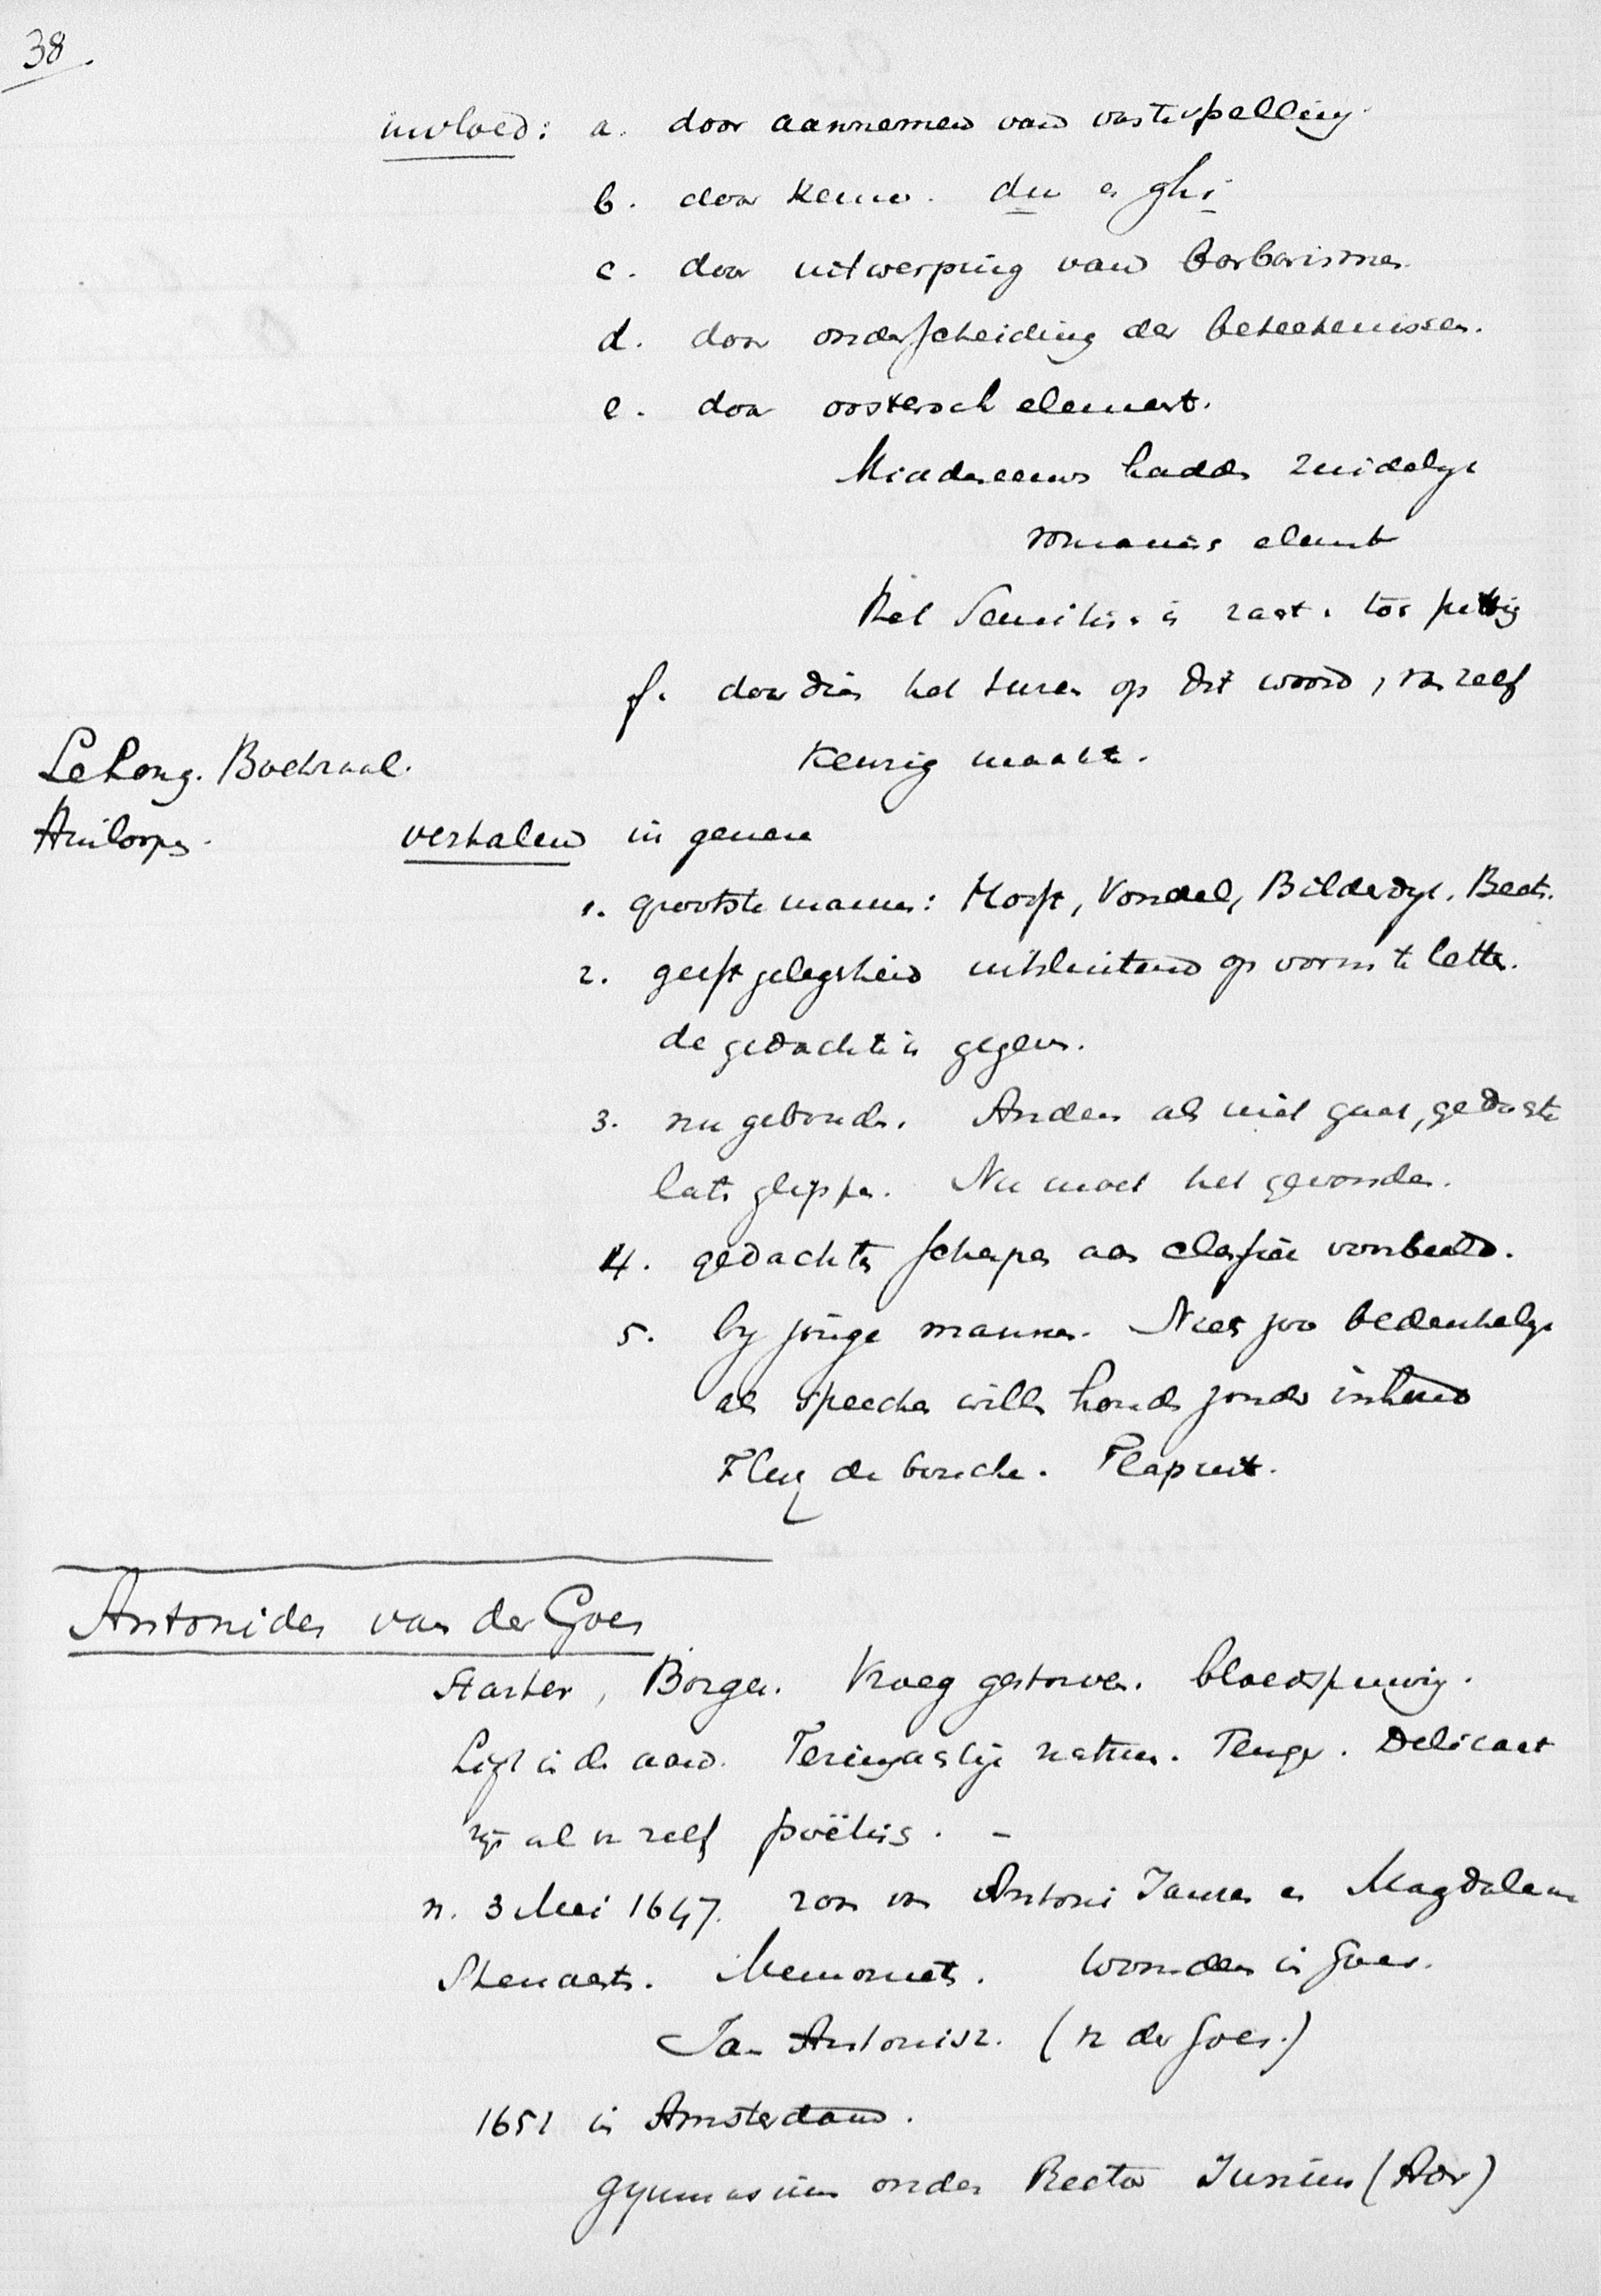 38.
invloed: a. door aannemen van vaste spelling.
b. door keur. du en ghi
c. door uitwerping van barbarismen.
d. door onderscheiding der beteekenissen.
e. door oostersch element.
Middeleeuws hadden zuidelijk
romaans element
Het Semitis. is zacht. pittig
f. door dien het turen op dit woord, van zelf
keurig maakt.
Le Long. Boekzaal.
verhalen in genere
1. grootste mannen: Hooft, Vondel, Bilderdijk, Beets.
2. geeft gelegenheid uitsluitend op vorm te letten.
de gedachte is gegeven.
3. nu gebonden. Anders als niet gaat, gedachte
laten glippen. Nu moet het gevonden.
4. gedachten scherpen aan classiek voorbeeld.
5. bij jonge mannen. Niets zoo bedenkelijk
als speechen willen houden zonder inhoud
Fleuz de bouche. Flapuit.
Antonides van der Goes
Starter, Borger. Vroeg gestorven. bloedspuwing.
Ligt in de aard. Teringachtige natuur. Tenger. Delicaat
zijn al van zelf poëtis. -
n. 3 Mei 1647. zoon van Antoni Jansen en Magdalena
Menoniets. Woonden in Goes.
Jan Antonisz. (v. der Goes.)
1651 in Amsterdam.
gymnasium onder Rector Junius (Adr)